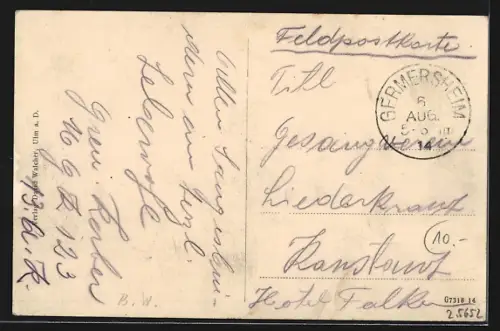 Feldpostkarte.
Titl
Gesangverein
Liederkranz
Konstanz
Hotel Falken
GERMERSHEIM
6
AUG.
5-6
14
10.-
Allen Sangesbrü-
dern ein herzl.
Lebewohl
Gren.
123
B.W.
Verlag Walcher, Ulm a. D.
G7318 14
25652